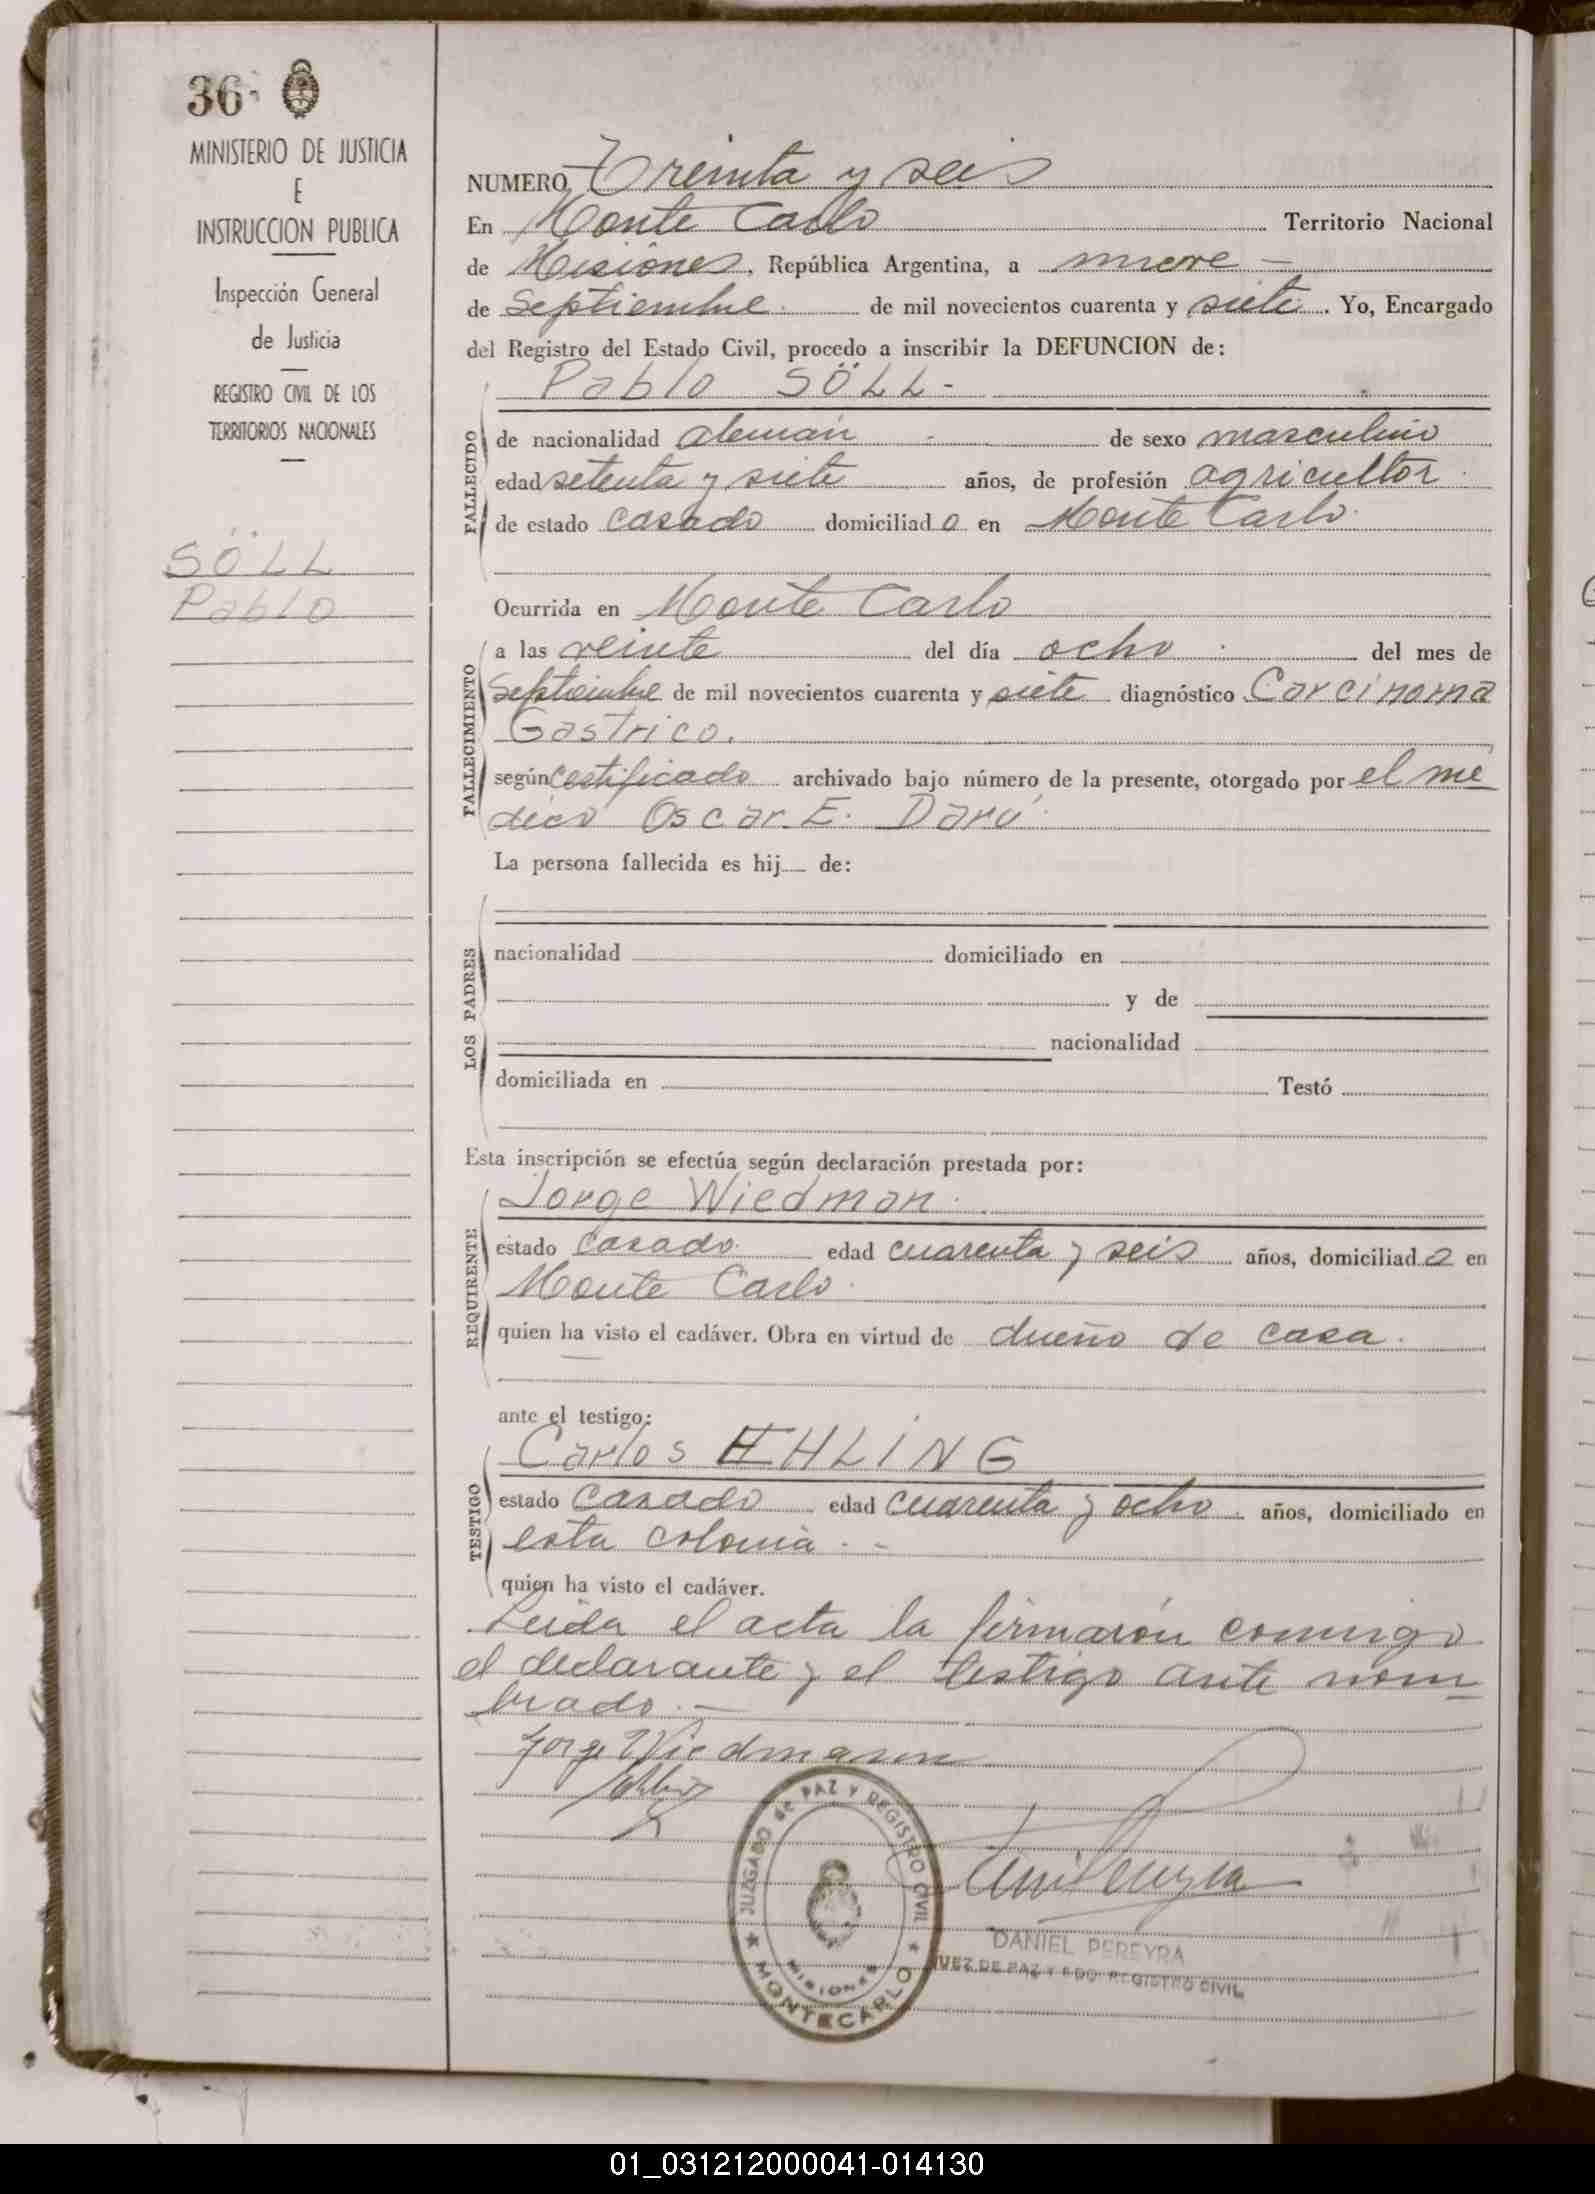 36
MINISTERIO DE JUSTICIA
E
INSTRUCCION PUBLICA
Inspección General
de Justicia
REGISTRO CIVIL DE LOS
TERRITORIOS NACIONALES
SÖLL
Pablo
NUMERO Treinta y seis
En Monte Carlo Territorio Nacional
de Misiones, República Argentina, a nueve -
de Septiembre. de mil novecientos cuarenta y siete. Yo, Encargado
del Registro del Estado Civil, procedo a inscribir la DEFUNCION de:
Pablo SÖLL-
FALLECIDO
de nacionalidad alemán - de sexo masculino
edad setenta y siete años, de profesión agricultor.
de estado casado domiciliado en Monte Carlo.
Ocurrida en Monte Carlo
FALLECIMIENTO
a las veinte del día ocho . del mes de
Septiembre de mil novecientos cuarenta y siete diagnóstico Carcinoma
Gastrico.
según certificado archivado bajo número de la presente, otorgado por el mé
dico Oscar E. Darú.
La persona fallecida es hij de:
LOS PADRES
nacionalidad domiciliado en
y de
nacionalidad
domiciliada en Testó
Esta inscripción se efectúa según declaración prestada por:
REQUIRENTE
Jorge Wiedman.
estado casado. edad cuarenta y seis años, domiciliado en
Monte Carlo.
quien ha visto el cadáver. Obra en virtud de dueño de casa.
ante el testigo:
TESTIGO
Carlos EHLING
estado casado edad cuarenta y ocho. años, domiciliado en
esta colonia. -
quien ha visto el cadáver.
Leida el acta la firmarón conmigo
el declarante y el testigo ante nom
brado. -
Jorge Wiedmann
JUZGADO de PAZ Y REGISTRO CIVIL
MISIONES
MONTECARLO
DANIEL PEREYRA
JUEZ DE PAZ Y EDO. REGISTRO CIVIL
01_031212000041-014130